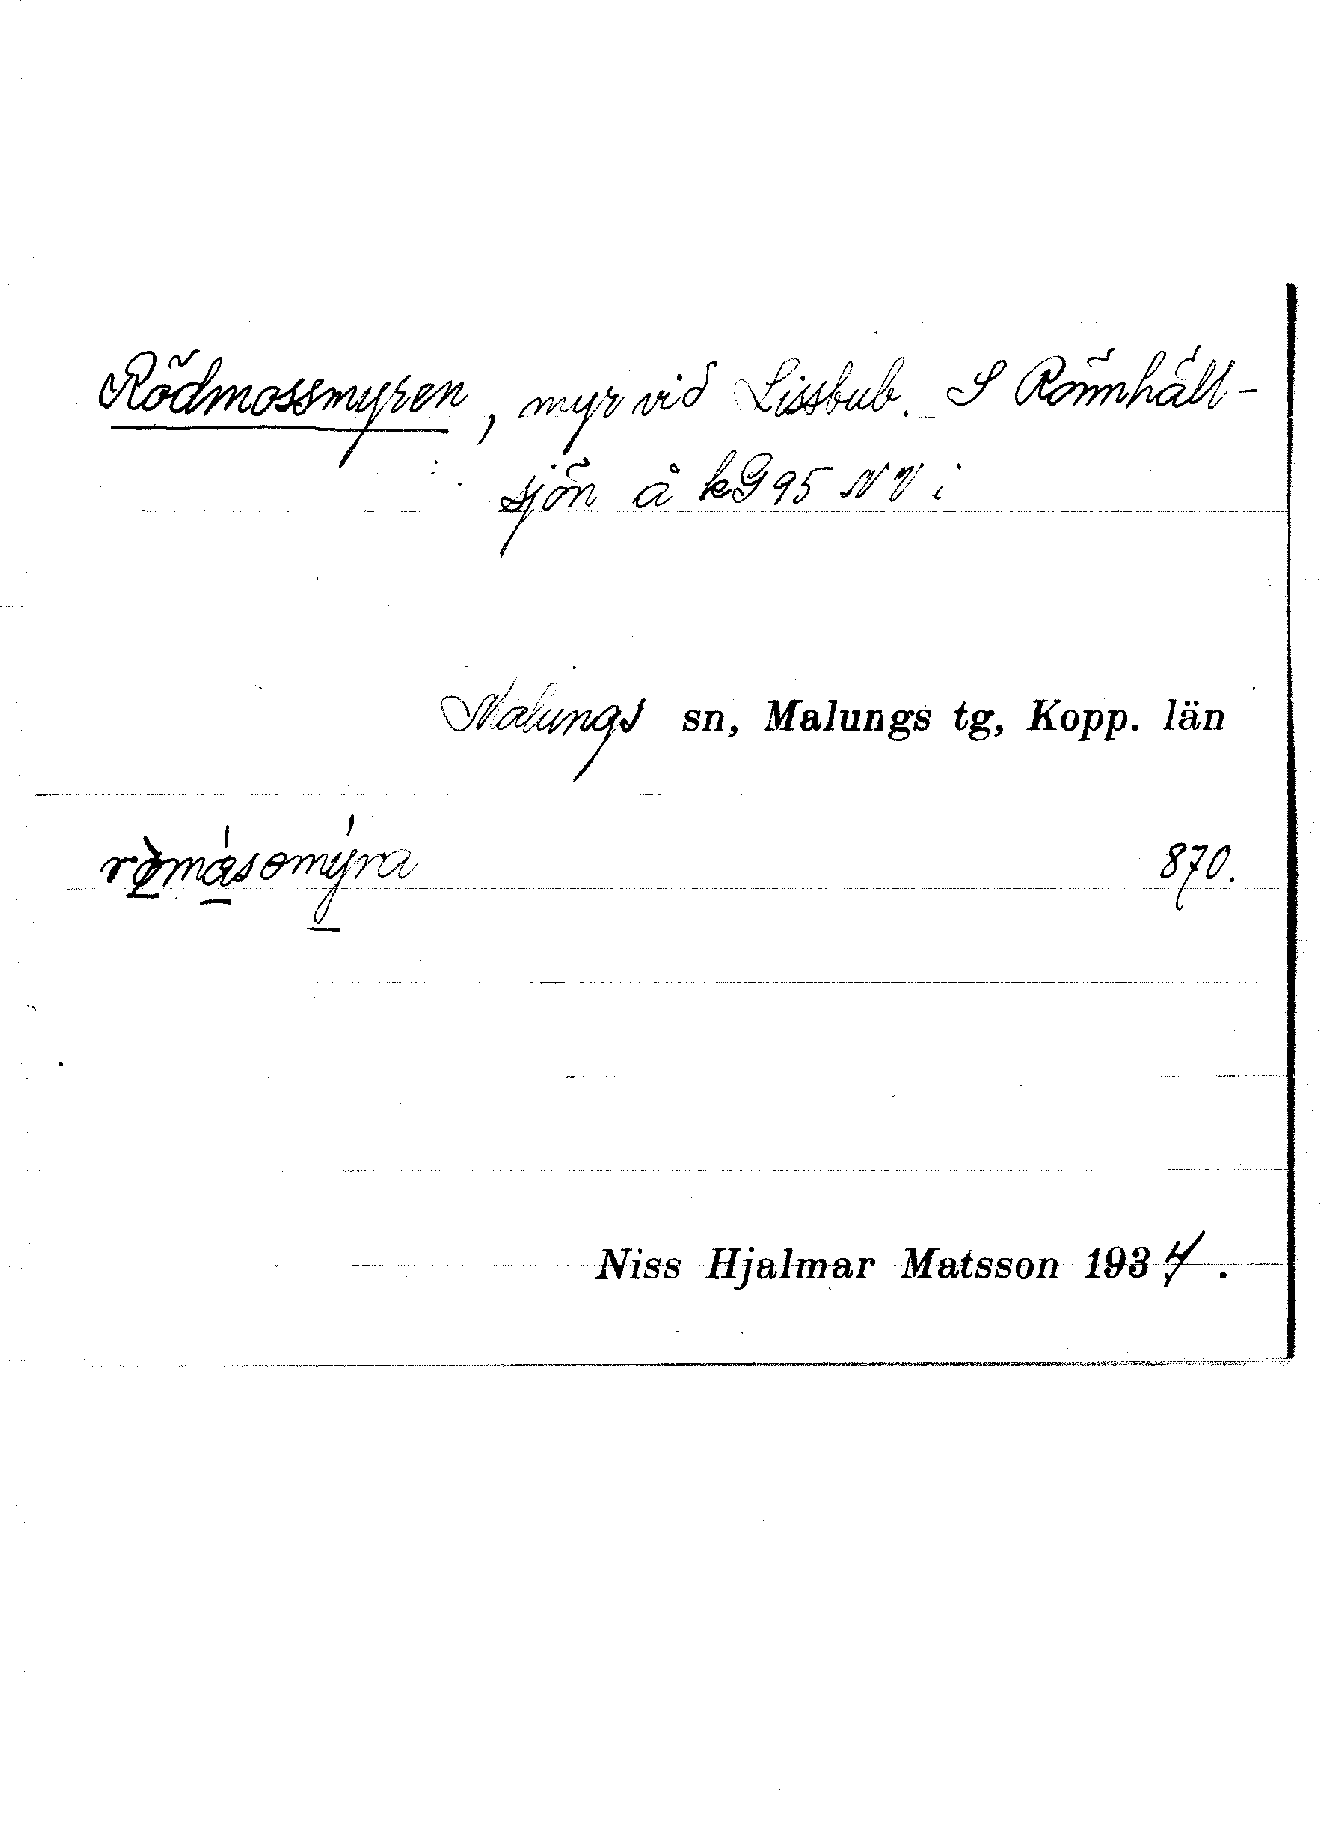 Rödmossmyren, myr vid Lissbub. S Rönnhäll-
sjön å kG95 NV i
Malungs sn, Malungs tg, Kopp. län
870.
Niss Hjalmar Matsson 1934.